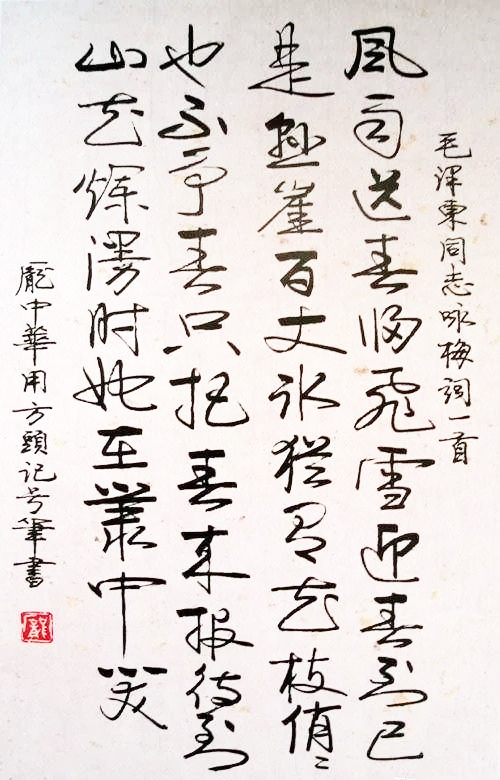 毛泽東同志咏梅词一首
風雨送春归飛雪迎春到已
是懸崖百丈冰猶有花枝俏〻
也不争春只把春来报待到
山花烂漫时她在叢中笑
龐中華用方頭记号筆書
龐